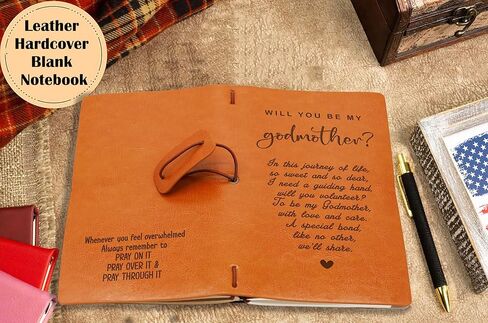 Leather
Hardcover
Blank
Notebook
WILL YOU BE MY
godmother?
In this journey of life,
so sweet and so dear,
I need a guiding hand,
will you volunteer?
To be my Godmother,
with love and care.
A special bond,
like no other,
we'll share.
Whenever you feel overwhelmed
Always remember to
PRAY ON IT
PRAY OVER IT &
PRAY THROUGH IT